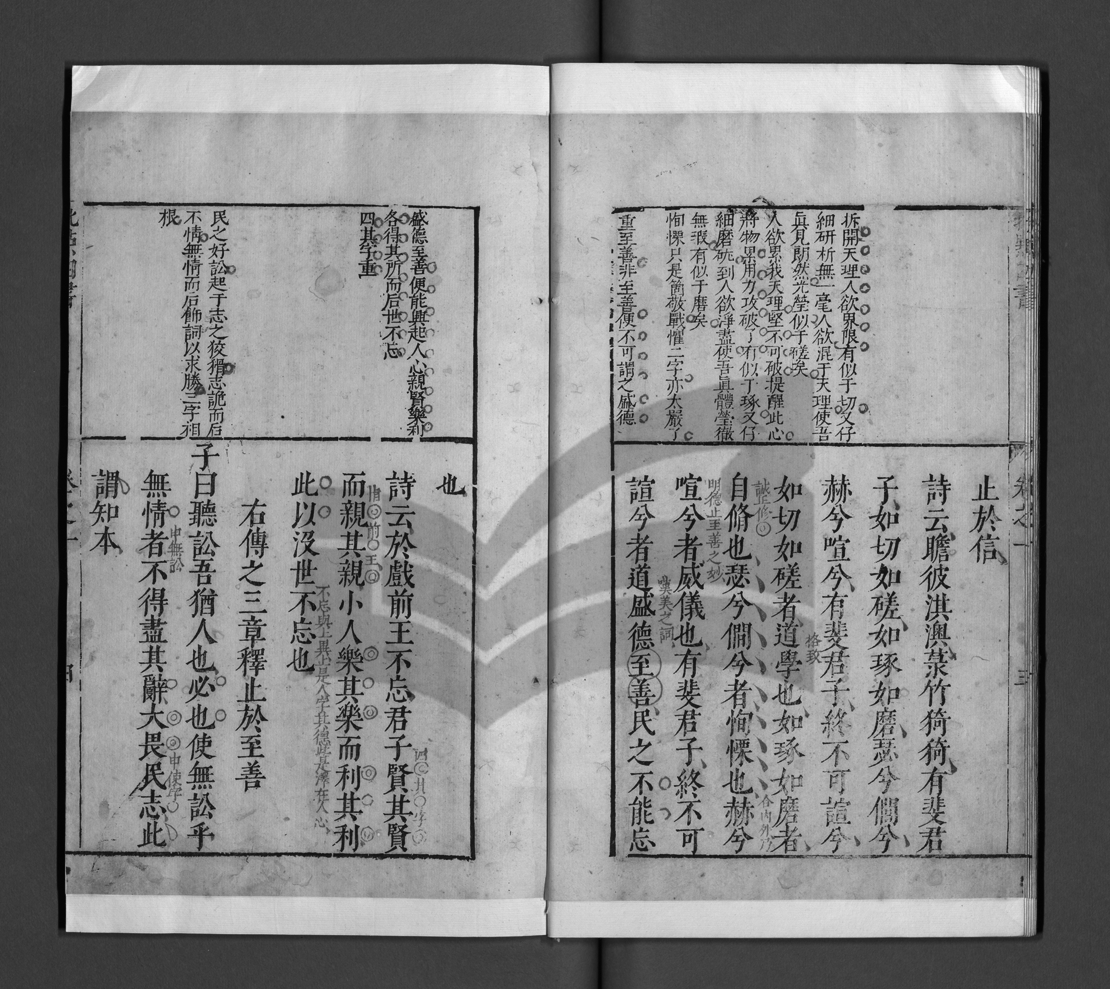 拆開天理人欲界限有似于切又仔
細研析無一毫人欲混于天理使吾
真見朗然光瑩似于磋矣
人欲累我天理堅不可破提醒此心
將物累用力攻破了有似于琢又仔
細磨砻到人欲淨盡使吾真體瑩徹
無瑕有似于磨矣
恂慄只是箇敬戰懼二字亦太嚴了
重至善非至善便不可謂之盛德
止於信
詩云瞻彼淇澳菉竹猗猗有斐君
子如切如磋如琢如磨瑟兮僩兮
赫兮喧兮有斐君子終不可諠兮
格致
如切如磋者道學也如琢如磨者
誠正修
合內外乃
自脩也瑟兮僩兮者恂慄也赫兮
明德止至善之妙
喧兮者威儀也有斐君子終不可
嘆美之詞
諠兮者道盛德至善民之不能忘
盛德至善便能興起人心親賢樂利
各得其所而后世不忘
四其字重
民之好訟起于志之狡猾志詭而后
不情無情而后飾詞以求勝二字相
根
也
四其字
詩云於戲前王不忘君子賢其賢
申前王
而親其親小人樂其樂而利其利
不忘與上異上是人學其德此是澤在人心
此以沒世不忘也
右傳之三章釋止於至善
子曰聽訟吾猶人也必也使無訟乎
申無訟
申使字
無情者不得盡其辭大畏民志此
謂知本
卷之一
三